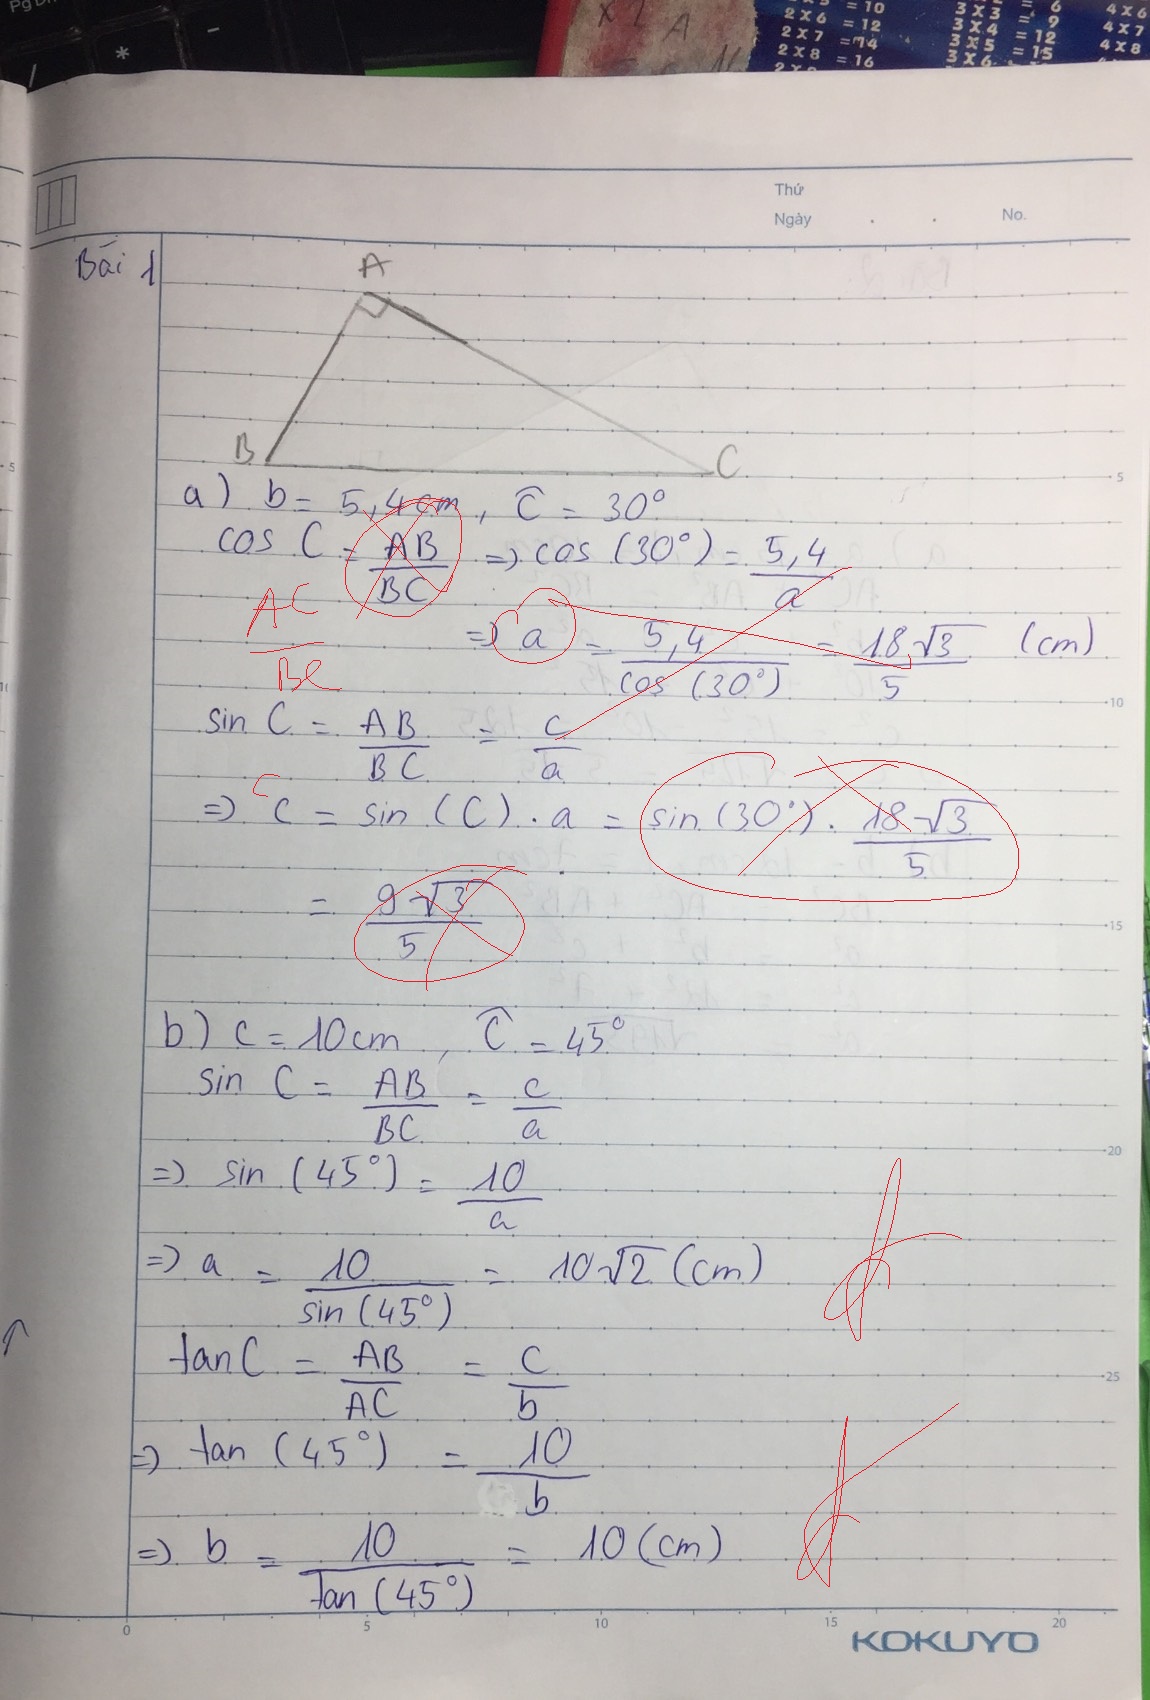 Pg Dn
*
-
/
x 2 A
2 x 6 = 12
2 x 7 = 14
2 x 8 = 16
3 x 3 = 9
3 x 4 = 12
3 x 5 = 15
3 x 6
4 x 6
4 x 7
4 x 8
Thứ
Ngày . . No.
Bài 1
A
B C
a) b = 5,4 cm , Ĉ = 30°
cos C = AB/BC => cos (30°) = 5,4/a
AC/BC
=> a = 5,4/cos (30°) = 18√3/5 (cm)
sin C = AB/BC = c/a
=> c = sin (C) . a = sin (30°) . 18√3/5
= 9√3/5
b) c = 10 cm , Ĉ = 45°
sin C = AB/BC = c/a
=> sin (45°) = 10/a
=> a = 10/sin (45°) = 10√2 (cm)
tan C = AB/AC = c/b
=> tan (45°) = 10/b
=> b = 10/tan (45°) = 10 (cm)
5
10
15
20
25
0 5 10 15 20
KOKUYO